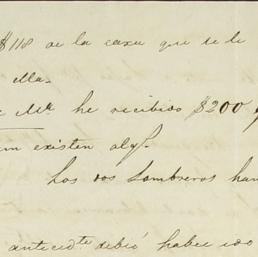 $118 de la casa que se le
ella.
Me. he recibido $200
existen alg.
Los dos sombreros han
antecidte debió haber ido